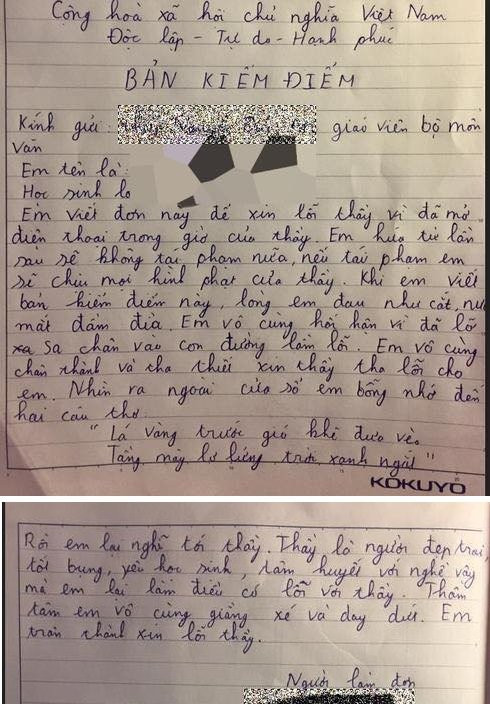 Cộng hoà xã hội chủ nghĩa Việt Nam
Độc lập - Tự do - Hạnh phúc
BẢN KIỂM ĐIỂM
Kính gửi: giáo viên bộ môn
Văn
Em tên là:
Học sinh lo
Em viết đơn này để xin lỗi thầy vì đã mở
điện thoại trong giờ của thầy. Em hứa từ lần
sau sẽ không tái phạm nữa, nếu tái phạm em
sẽ chịu mọi hình phạt của thầy. Khi em viết
bản kiểm điểm này, lòng em đau như cắt, nước
mắt đầm đìa. Em vô cùng hối hận vì đã lỡ
xa sa chân vào con đường lầm lỗi. Em vô cùng
chân thành và tha thiết xin thầy tha lỗi cho
em. Nhìn ra ngoài cửa sổ em bỗng nhớ đến
hai câu thơ:
"Lá vàng trước gió khẽ đưa vèo
Tầng mây lơ lửng trời xanh ngắt"
KOKUYO
Rồi em lại nghĩ tới thầy. Thầy là người đẹp trai,
tốt bụng, yêu học sinh, tâm huyết với nghề vậy
mà em lại làm điều có lỗi với thầy. Thâm
tâm em vô cùng giằng xé và day dứt. Em
trân thành xin lỗi thầy.
Người làm đơn